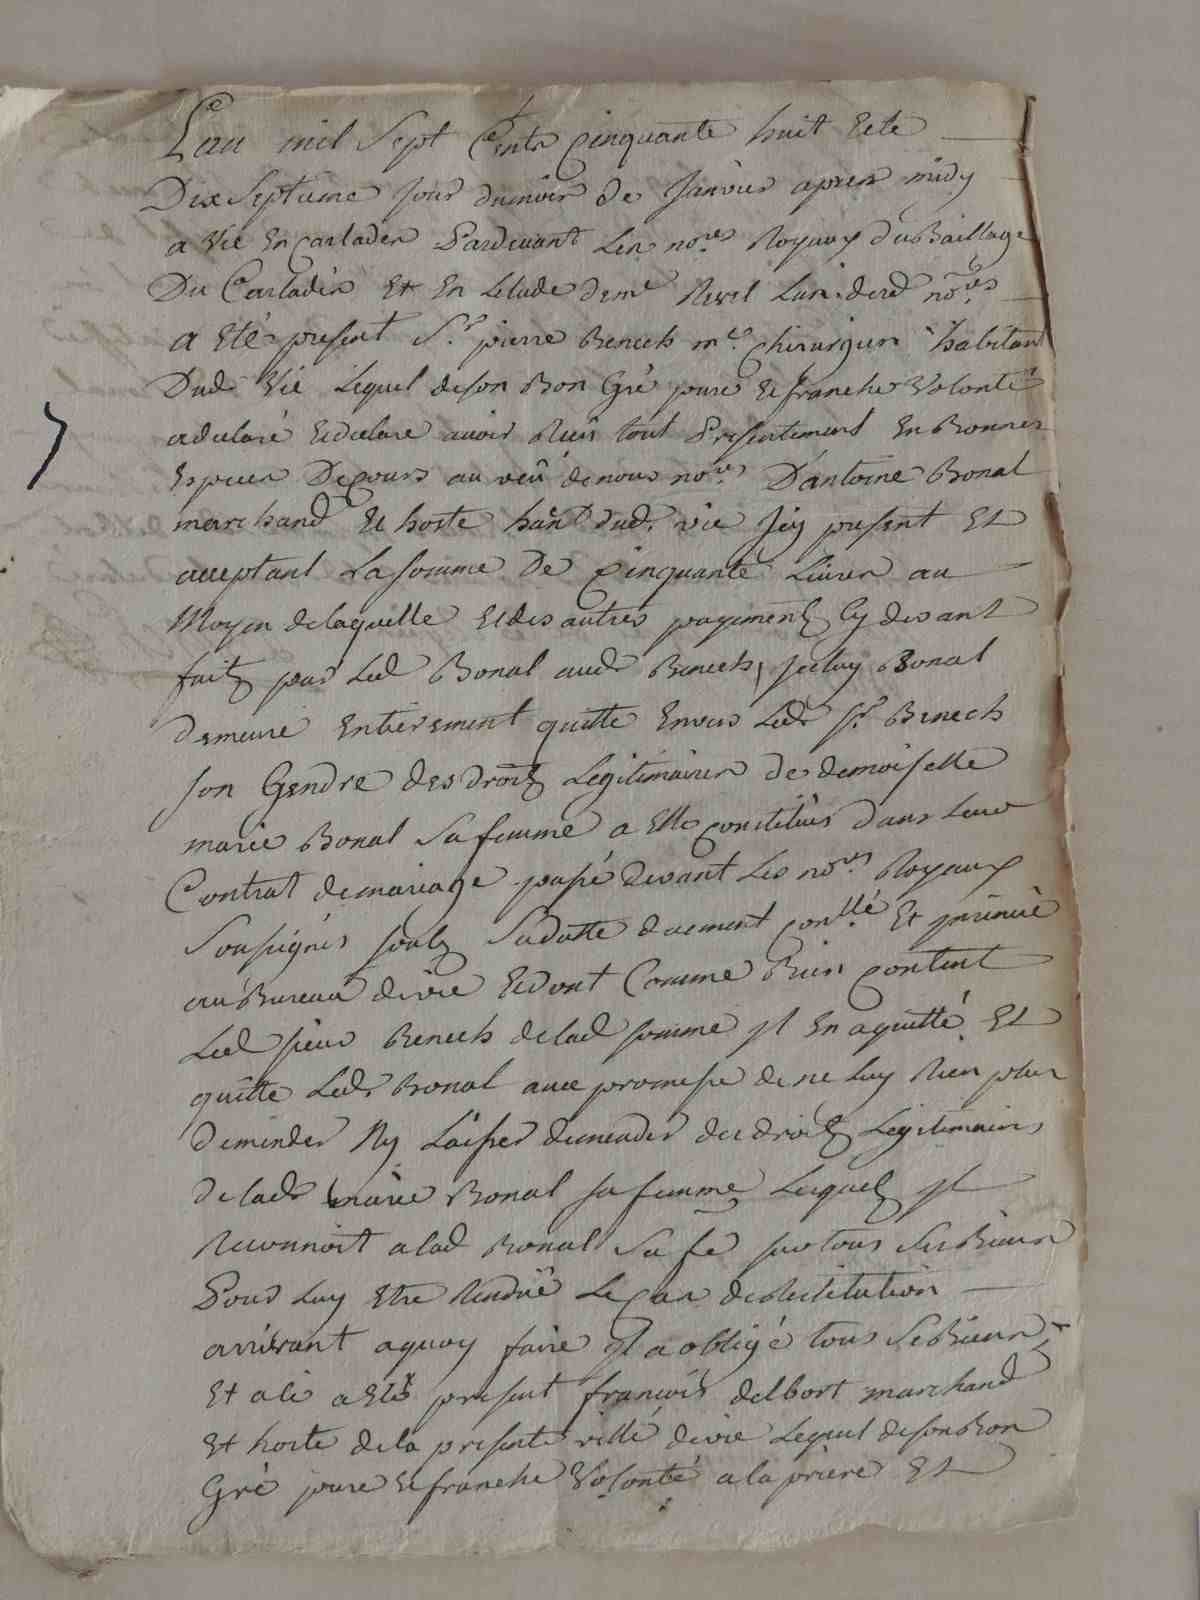 L'an mil Sept Cents Cinquante huit Et le
Dix Septieme jour du mois de Janvier apres midy
a Vic En Carladez Pardevant Les no.res Royaux du Baillage
Du Carladéz Et En Letude de me Revel L'un desd no.res
a Eté present S.r pierre Benech m.e chirurgien habitant
Dud. Vic Lequel de son Bon Gré pure et franche Volonté
a declaré Et declare avoir Reču tout Presentement En Bonnes
Especes De Cours au veû de nous no.res D'antoine Bonal
marchand Et hoste hânt dud. vic Jcy present Et
acceptant La somme De Cinquante Livres au
Moyen de laquelle Et des autres payements Cy devant
faits par Led Bonal aud. Benech, jceluy Bonal
demeure Entierement quitte Envers Led. Sr. Benech
son Gendre des droits Legitimaires de demoiselle
marie Bonal Sa femme a Elle Constitués dans Leur
Contrat de mariage passé Devant Les no.res Royaux
Soussignés soubs Sa datte duement con.llé Et jnsinué
au Bureau de vic Et dont Comme Bien Content
Led sieur Benech de lad somme jl En a quitté Et
quitte Led. Bonal avec promesse de ne Luy Rien plus
demender Ny Laisser demender des droits Legitimaires
de lad. marie Bonal sa femme Lesquels jl
Reconnoit a lad Bonal Sa fe sur tous Ses Biens
Pour Luy Etre Rendus Le Cas de Restitution
arrivant a quoy faire jl a obligé tous Ses Biens
Et a Ce a Eté present françois delbort marchand
Et hoste de la presente ville de vic Lequel de son Bon
Gré pure Et franche Volonté a la priere Et